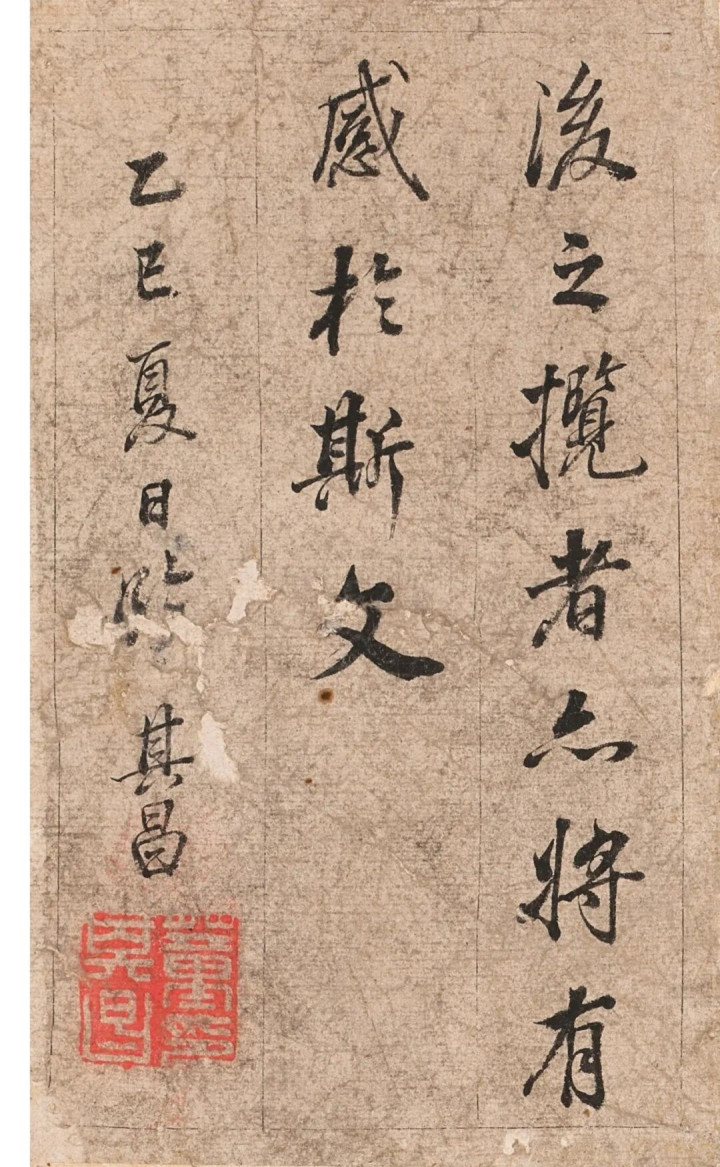 後之攬者亦將有
感於斯文
乙巳夏日臨 其昌
董其昌印